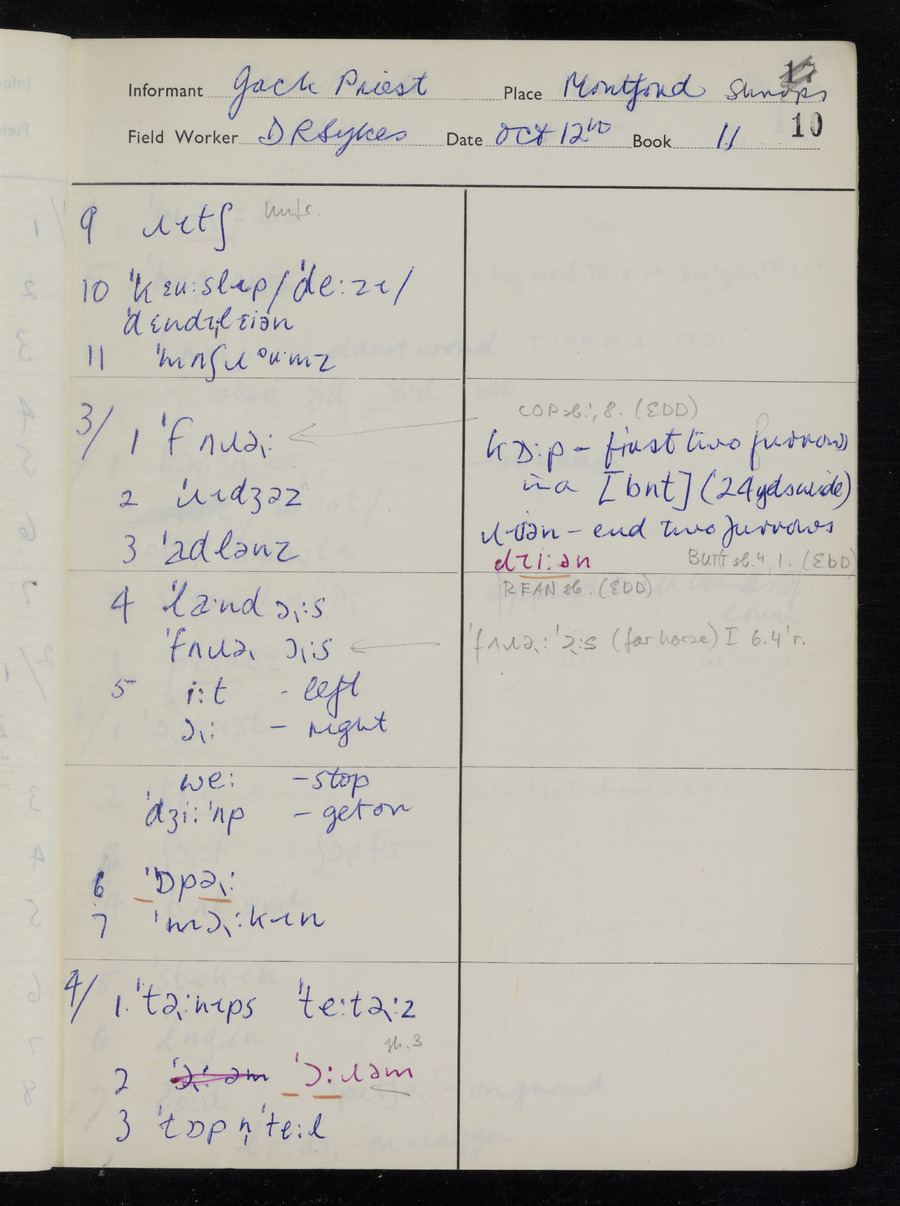 Informant Jack Priest Place Montford Shrops
17
Field Worker D R Sykes Date Oct 12th Book 11 10
9 ɹɪtʃ
10 ˈkɛu:slɪp/ˈde:zɪ/
ˈdɛndɪlɛiən
11 ˈmʌʃɹoumz
3/ 1 ˈfʌɹə˞:
2 ˈɹɪdʒəz
3 ˈadlənz
4 ˈla:nd ɔ˞:s
ˈfʌɹə˞ ɔ˞:s
5 i:t - left
ɔ˞: - right
we: - stop
ˈdʒi:ˈʌp - get on
6 ˈɒpə˞:
7 ˈmə˞:kɪn
4/ 1. ˈtə˞:nɪps ˈte:tə˞:z
sh.3
2 ˈɔ:ɹəm
3 ˈtɒp n̩ ˈte:l
COP sb.¹, 8. (EDD)
kɒ:p - first two furrows
in a [bʌt] (24 yds wide)
- end two furrows
BUTT sb.4, 1. (EDD)
REAN sb. (EDD)
ˈfʌɹə˞: ˈɔ˞:s (for horse) I 6.4'r.